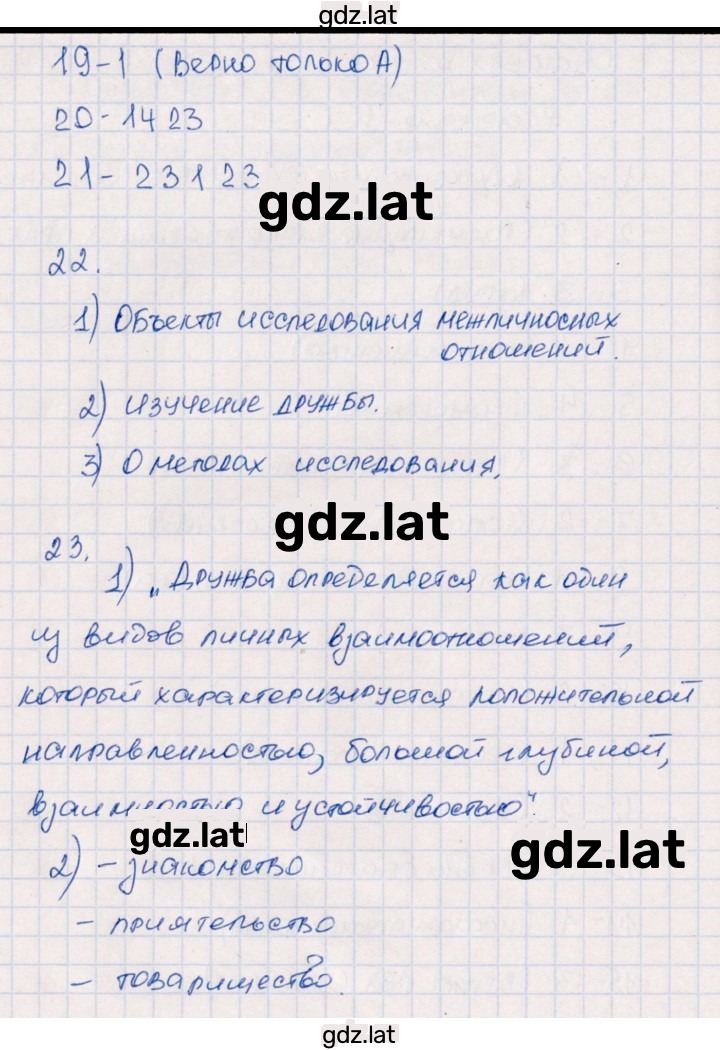 gdz.lat
19-1 (Верно только А)
20-1423
21-23123
gdz.lat
22.
1) Объекты исследования межличносных
отношений.
2) Изучение дружбы.
3) О методах исследования,
gdz.lat
23.
1) „Дружба определяется как один
из видов личных взаимоотношений,
который характеризируется положительной
направленностью, большой глубиной,
взаимностью и устойчивостью“.
gdz.lat
gdz.lat
2) - знакомство
- приятельство
- товарищество.
gdz.lat